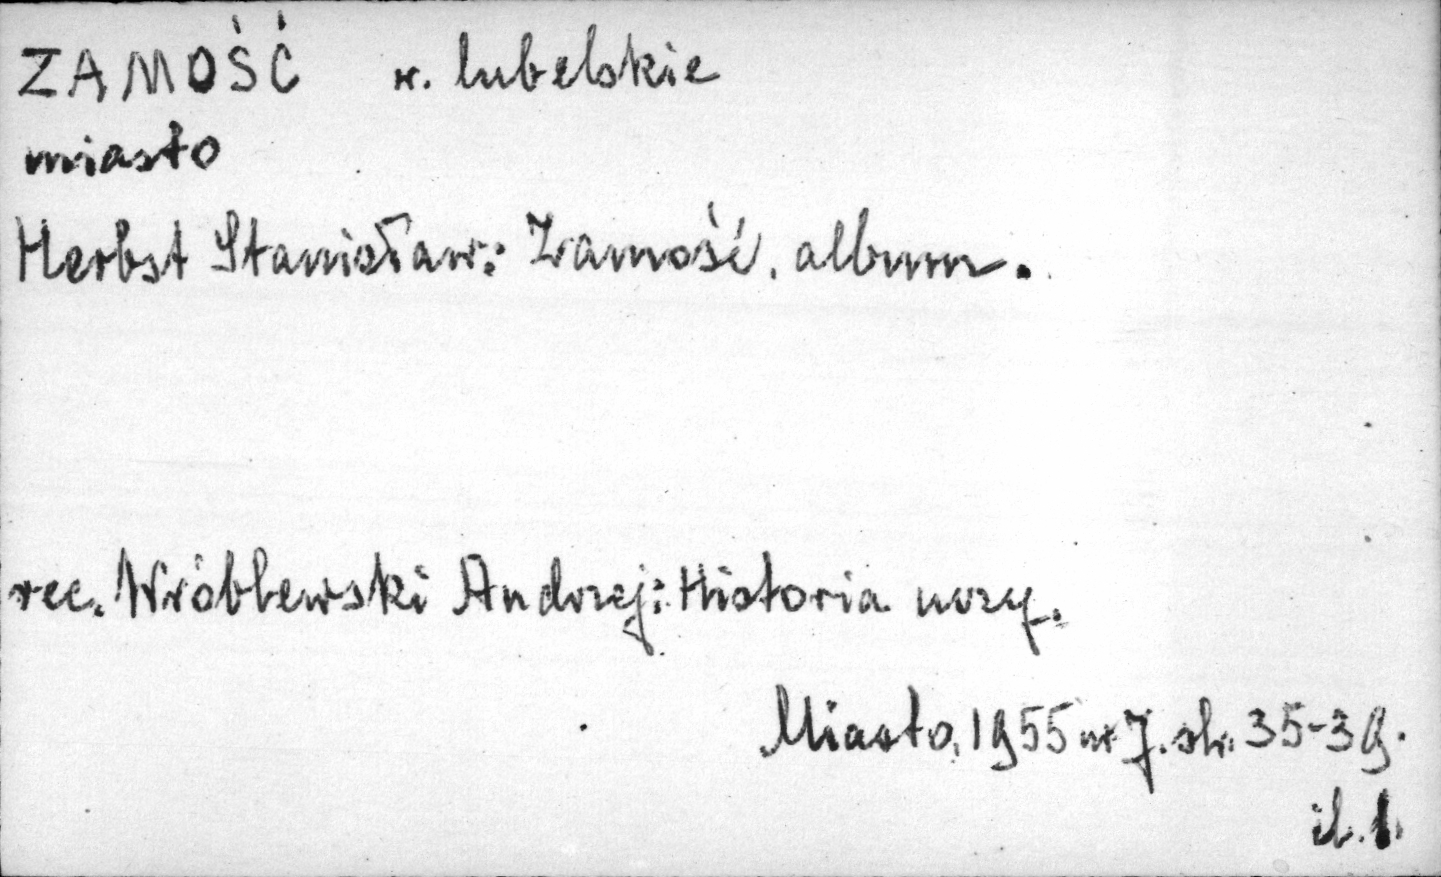 ZAMOŚĆ w. lubelskie
miasto
Herbst Stanisław: Zamość. album.
rec. Wróblewski Andrzej: Historia uczy.
Miasto, 1955 nr 7. str. 35-39.
il. 1.